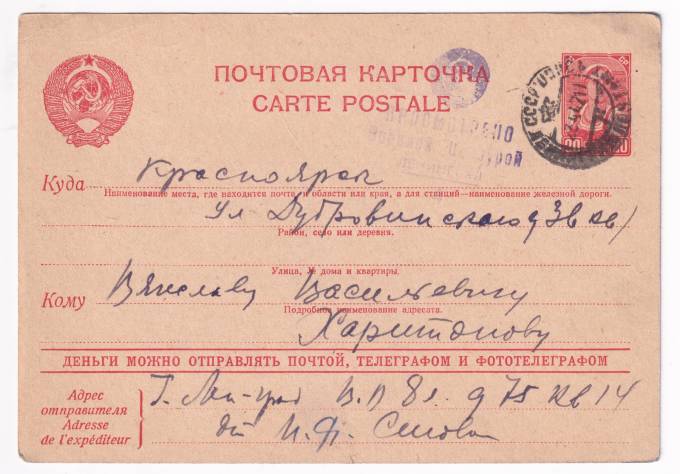 ПОЧТОВАЯ КАРТОЧКА
CARTE POSTALE
ПРОСМОТРЕНО
Военной Цензурой
Куда Красноярск
Наименование места, где находится почта, и области или края, а для станций—наименование железной дороги.
Ул Дубровинского д 3 кв 1
Район, село или деревня.
Улица, № дома и квартиры.
Кому Вячеславу Васильевичу
Подробное наименование адресата.
Харитонову
ДЕНЬГИ МОЖНО ОТПРАВЛЯТЬ ПОЧТОЙ, ТЕЛЕГРАФОМ И ФОТОТЕЛЕГРАФОМ
Адрес отправителя
Adresse de l'expéditeur
Г. Лен-град В.О 8 л. д 75 кв 14